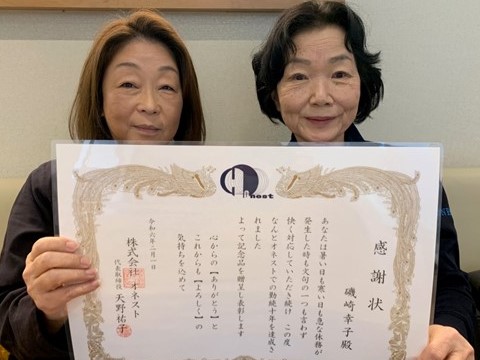 Honest
感謝状
磯崎幸子殿
あなたは暑い日も寒い日も急な休務が
発生した時も文句の一つも言わず
快く対応していただき続け この度
なんとオネストでの勤続十年を達成さ
れました
よって記念品を贈呈し表彰します
心からの【ありがとう】と
これからも【よろしく】の
気持ちを込めて
令和六年二月一日
株式会社 オネスト
代表取締役 天野祐子